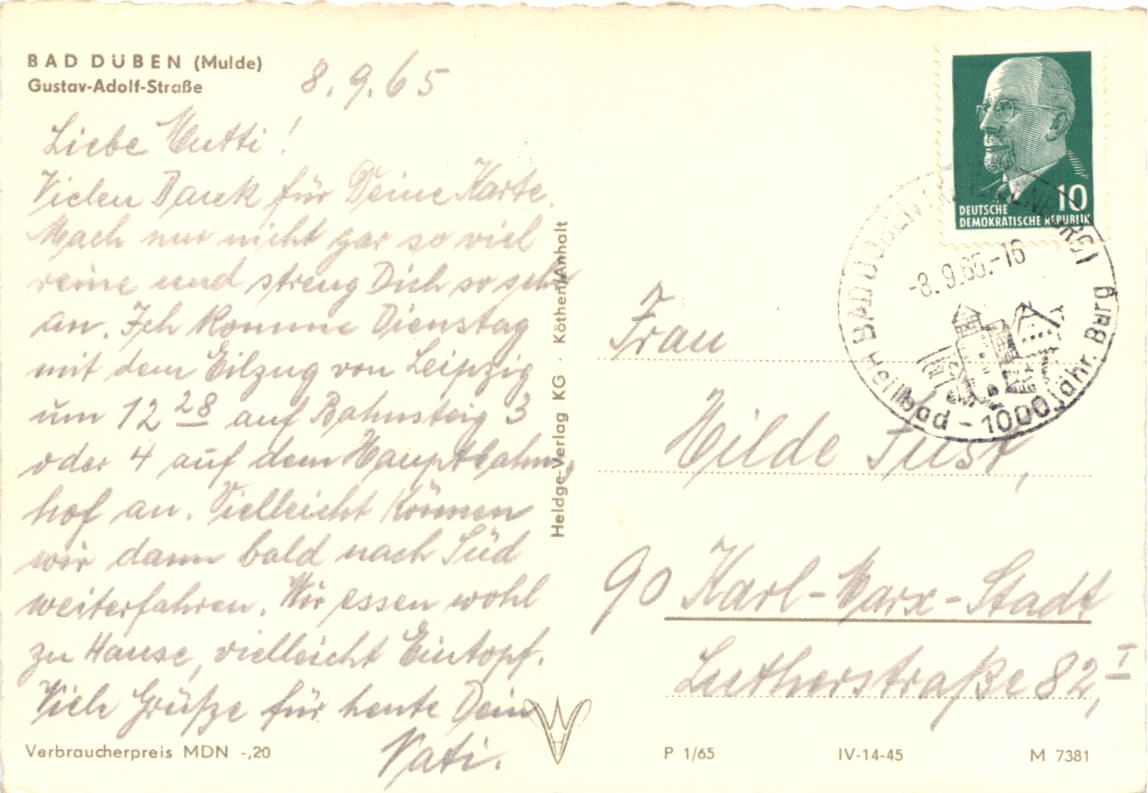 BAD DÜBEN (Mulde)
Gustav-Adolf-Straße
8.9.65
Liebe Mutti!
Vielen Dank für Deine Karte.
Mach nur nicht gar so viel
reine und streng Dich so sehr
an. Ich komme Dienstag
mit dem Eilzug von Leipzig
um 12 28 auf Bahnsteig 3
oder 4 auf dem Hauptbahn-
hof an. Vielleicht können
wir dann bald nach Süd
weiterfahren. Wir essen wohl
zu Hause, vielleicht Eintopf.
Viele Grüße für heute Dein
Vati.
Verbraucherpreis MDN -,20
Heldge-Verlag KG · Köthen/Anhalt
10
DEUTSCHE
DEMOKRATISCHE REPUBLIK
BAD DÜBEN (KR EILENBURG)
-8.9.65.-16
Heilbad - 1000jähr. Burg
Frau
Hilde Just,
90 Karl-Marx-Stadt
Lutherstraße 82, I
P 1/65
IV-14-45
M 7381